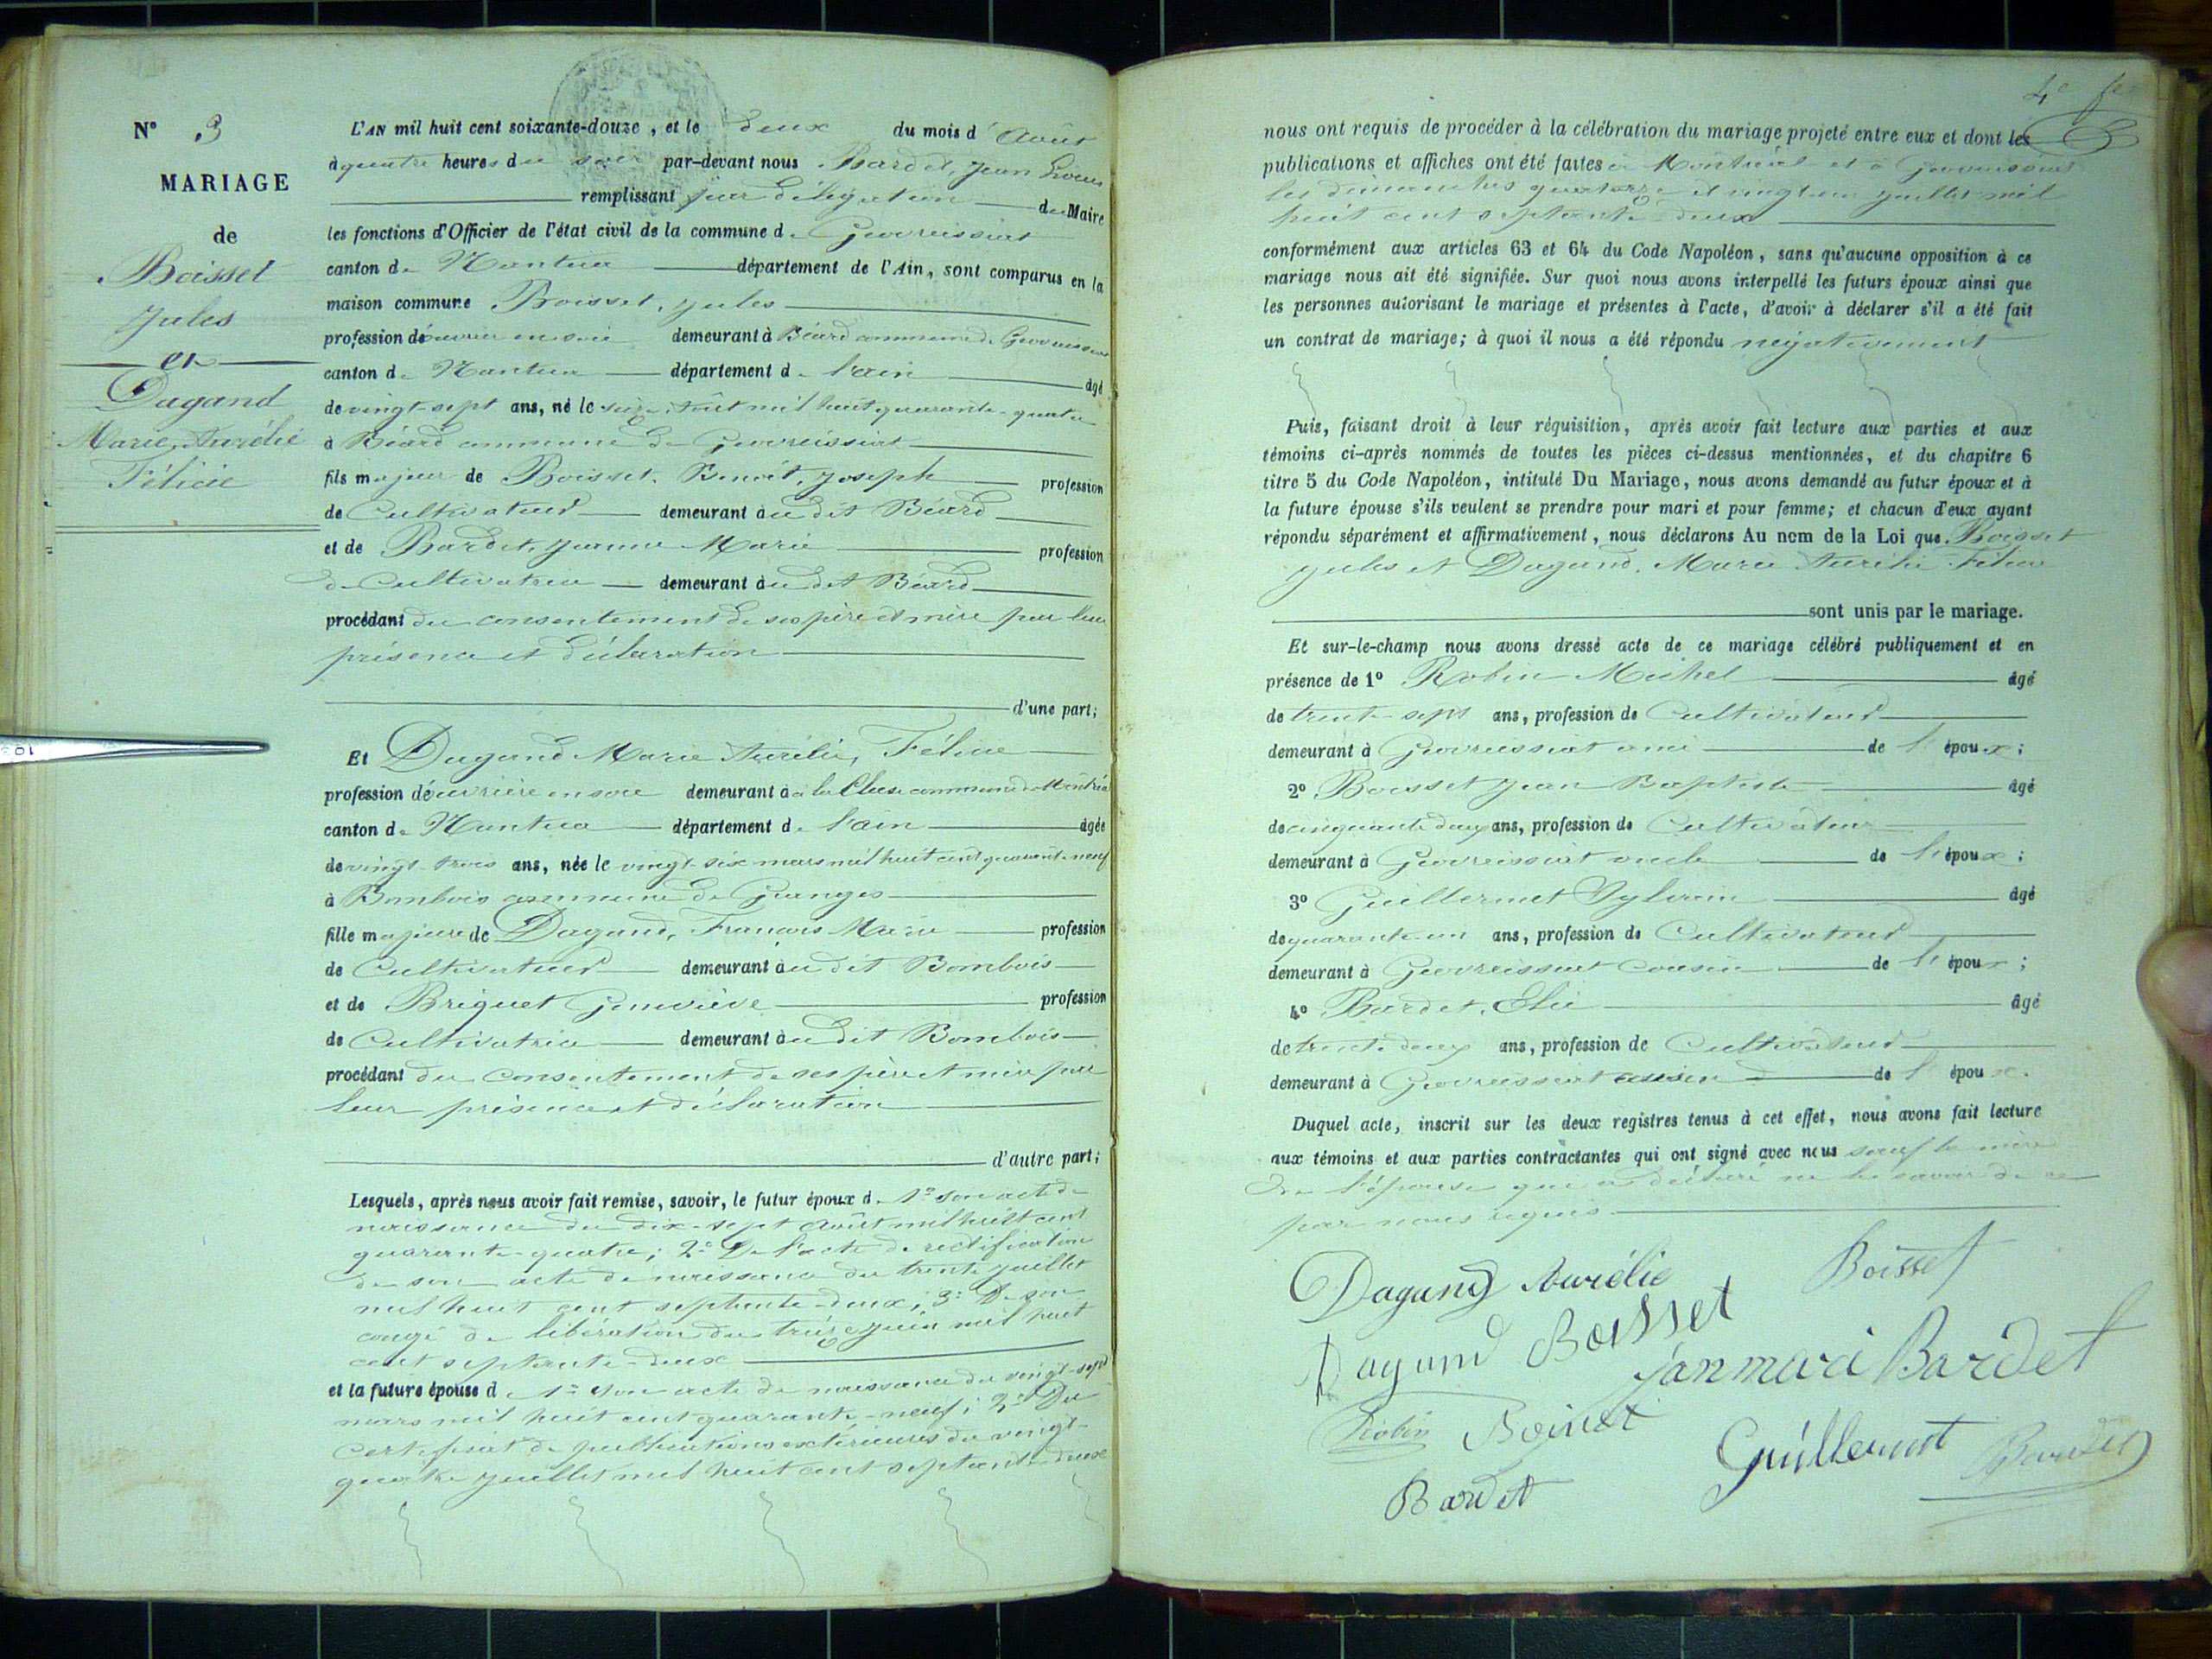 N° 3
MARIAGE
de
Boisset
Jules
et
Dagand
Marie Aurélie
Félicie
L'AN mil huit cent soixante-douze, et le deux du mois d'Août
à quatre heures du soir par-devant nous Bardet, Jean Louis
remplissant par délégation du Maire
les fonctions d'Officier de l'état civil de la commune de Géovreissiat
canton de Nantua département de l'Ain, sont comparus en la
maison commune Boisset, Jules
profession d'ouvrier en soie demeurant à Béard commune de Géovreissiat
canton de Nantua département de l'ain âgé
de vingt-sept ans, né le seize Août mil huit quarante-quatre
à Béard commune de Géovreissiat
fils majeur de Boisset, Benoît, Joseph profession
de Cultivateur demeurant au dit Béard
et de Bardet, Jeanne Marie profession
de Cultivatrice demeurant au dit Béard
procédant du consentement de ses père et mère par leur
présence et déclaration
d'une part;
Et Dagand Marie Aurélie, Félicie
profession d'ouvrière en soie demeurant à la Cluse commune de Montréal
canton de Nantua département de l'ain âgée
de vingt-trois ans, née le vingt-six mars mil huit cent quarante-neuf
à Bombois commune de Granges
fille majeure de Dagand, François Marie profession
de Cultivateur demeurant au dit Bombois
et de Briquet Geneviève profession
de Cultivatrice demeurant au dit Bombois
procédant du consentement de ses père et mère par
leur présence et déclaration
d'autre part;
Lesquels, après nous avoir fait remise, savoir, le futur époux de 1° son acte de
naissance du dix-sept Août mil huit cent
quarante-quatre; 2° De l'acte de rectification
de son acte de naissance du trente juillet
mil huit cent septante-deux; 3° De son
congé de libération du treize juin mil huit
cent septante-deux
et la future épouse de 1° son acte de naissance du vingt-sept
mars mil huit cent quarante-neuf; 2° Du
Certificat de publications extérieures du vingt-
quatre juillet mil huit cent septante deux
4e
nous ont requis de procéder à la célébration du mariage projeté entre eux et dont les
publications et affiches ont été faites à Montréal et à Géovreissiat
les dimanches quatorze et vingt un juillet mil
huit cent septante-deux
conformément aux articles 63 et 64 du Code Napoléon, sans qu'aucune opposition à ce
mariage nous ait été signifiée. Sur quoi nous avons interpellé les futurs époux ainsi que
les personnes autorisant le mariage et présentes à l'acte, d'avoir à déclarer s'il a été fait
un contrat de mariage; à quoi il nous a été répondu négativement
Puis, faisant droit à leur réquisition, après avoir fait lecture aux parties et aux
témoins ci-après nommés de toutes les pièces ci-dessus mentionnées, et du chapitre 6
titre 5 du Code Napoléon, intitulé Du Mariage, nous avons demandé au futur époux et à
la future épouse s'ils veulent se prendre pour mari et pour femme; et chacun d'eux ayant
répondu séparément et affirmativement, nous déclarons Au nom de la Loi que Boisset
Jules et Dagand, Marie Aurélie Félicie
sont unis par le mariage.
Et sur-le-champ nous avons dressé acte de ce mariage célébré publiquement et en
présence de 1° Robin Michel âgé
de trente-sept ans, profession de Cultivateur
demeurant à Géovreissiat ami de l'époux;
2° Boisset Jean Baptiste âgé
de cinquante deux ans, profession de Cultivateur
demeurant à Géovreissiat oncle de l'époux;
3° Guillermet Sylvain âgé
de quarante-un ans, profession de Cultivateur
demeurant à Géovreissiat Cousin de l'époux;
4° Bardet, Elie âgé
de trente deux ans, profession de Cultivateur
demeurant à Géovreissiat cousin de l'époux.
Duquel acte, inscrit sur les deux registres tenus à cet effet, nous avons fait lecture
aux témoins et aux parties contractantes qui ont signé avec nous sauf la mère
De l'épouse qui a déclaré ne le savoir de ce
par nous requis
Dagand Aurélie Boisset
Dagand Boisset
Janmari Bardet
Robin Boisset
Guillermet Bardet
Bardet